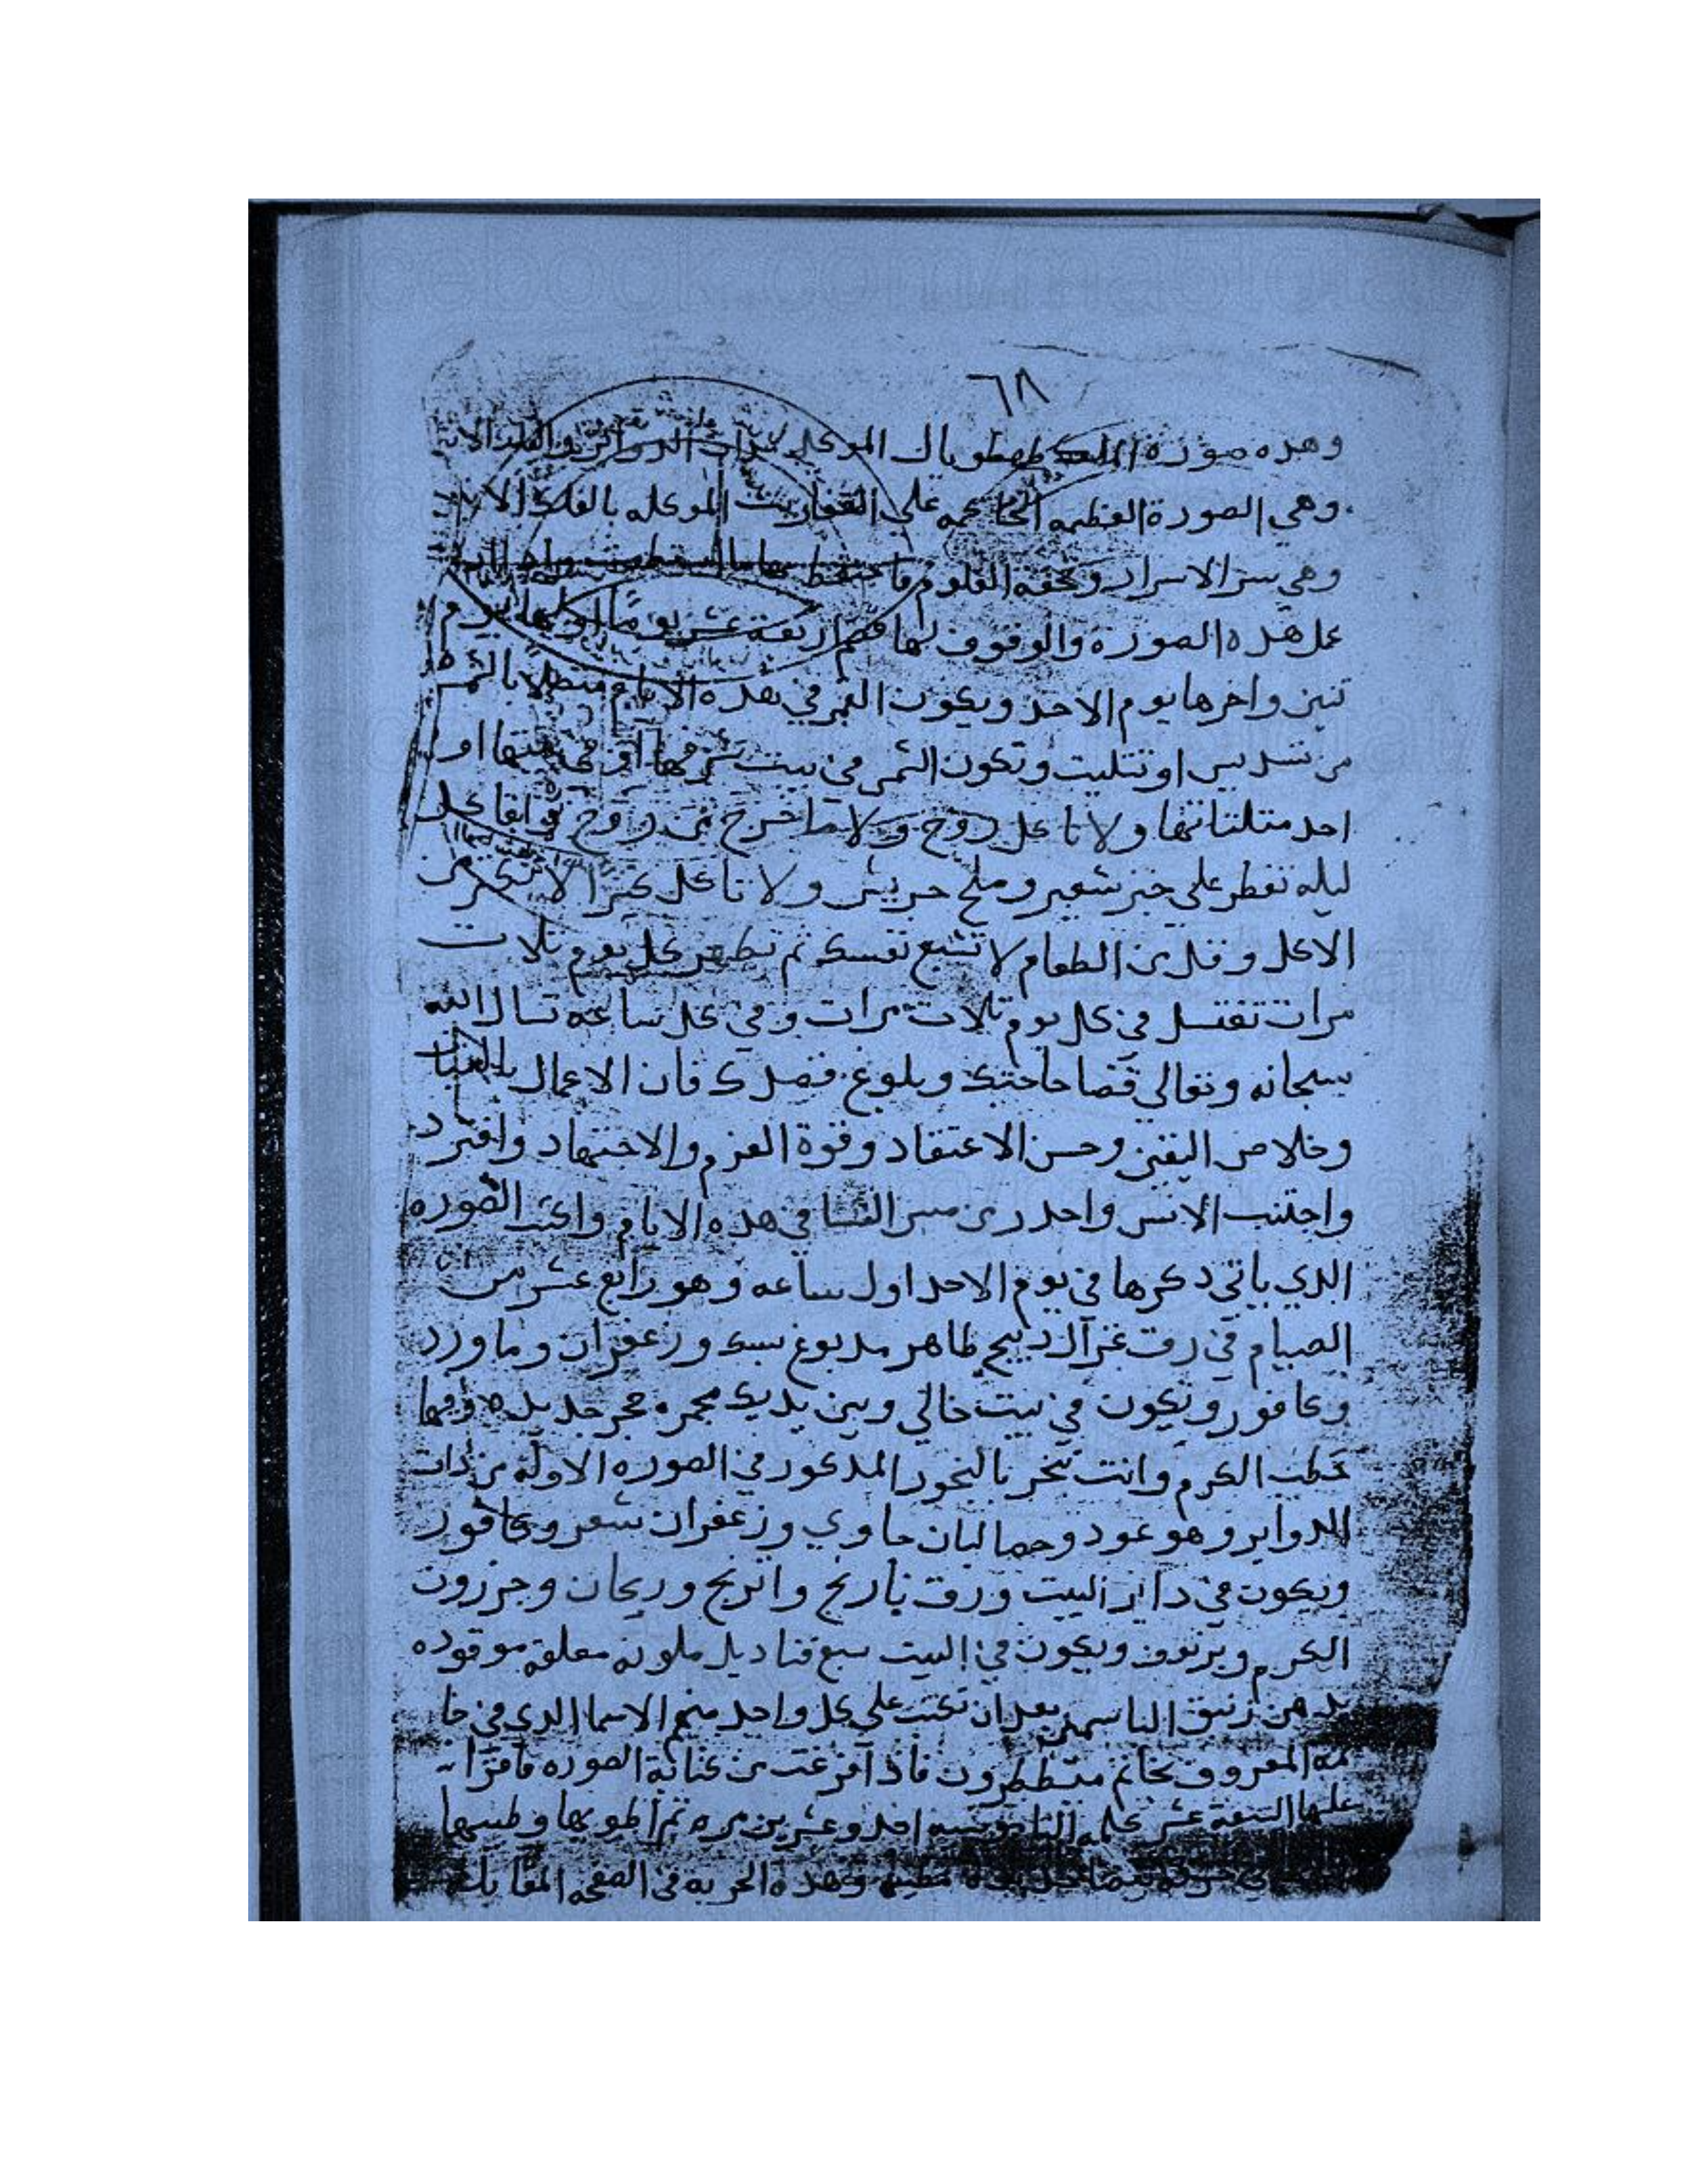 ٦٨
وهذه صورة الملك طهطويال الموكل بذات الدواير والفلك الاثير
وهي الصورة العظيمه الحاكمه على العفاريت الموكله بالفلك الاثير
وهي سر الاسرار وتحفه العلوم فاحتفظ بها ما استطعت واذا اردت
عمل هذه الصورة والوقوف لها فصم اربعة عشر يوماً اولها يوم
تنين واخرها يوم الاحد ويكون القمر في هذه الايام متصلاً بالشمس
من تسديس او تتليت وتكون الشمس في بيت شرفها او في بيتها او
احد متلتاتها ولا تاكل روح ولا ما خرج من روح وابقا كل
ليله تفطر على خبز شعير وملح جريش ولا تاكل كتيرا لا تكتر من
الاكل وقلل من الطعام لا تشبع نفسك ثم تطهر كل يوم تلات
مرات تغتسل في كل يوم تلات مرات وفي كل ساعه تسال الله
سبحانه وتعالي قضا حاجتك وبلوغ قصدك فان الاعمال بالنيات
وخلاص اليقين وحسن الاعتقاد وقوة العزم والاجتهاد وانفرد
واجتنب الانس واحدر من مس النسا في هده الايام واكتب الصوره
الدي ياتي دكرها في يوم الاحد اول ساعه وهو رابع عشر من
الصيام في رق غزال دبيح طاهر مدبوغ بمسك وزعفران وماورد
وكافور وتكون في بيت خالي وبين يديك مجمره حجر جديده وفيها
حطب الكرم وانت تبخر بالبخور المدكور في الصوره الاولة من دات
الدواير وهو عود وحصالبان جاوي وزعفران شعر وكافور
ويكون في داير البيت ورق نارنج واترنج وريحان وجرزون
الكرم وبرنوف ويكون في البيت سبع قناديل ملونه معلقه موقوده
بدهن زنبق الياسمين بعد ان تكتب على كل واحد منهم الاسما الدي في خا
تمه المعروف بخاتم مططرون فاذا فرغت من كتابة الصوره فاقرا
عليها التسعة عشر كلمه احد وعشرين مره تم اطويها وطيبها
في وهذه الحربه في الصفحه المقابله